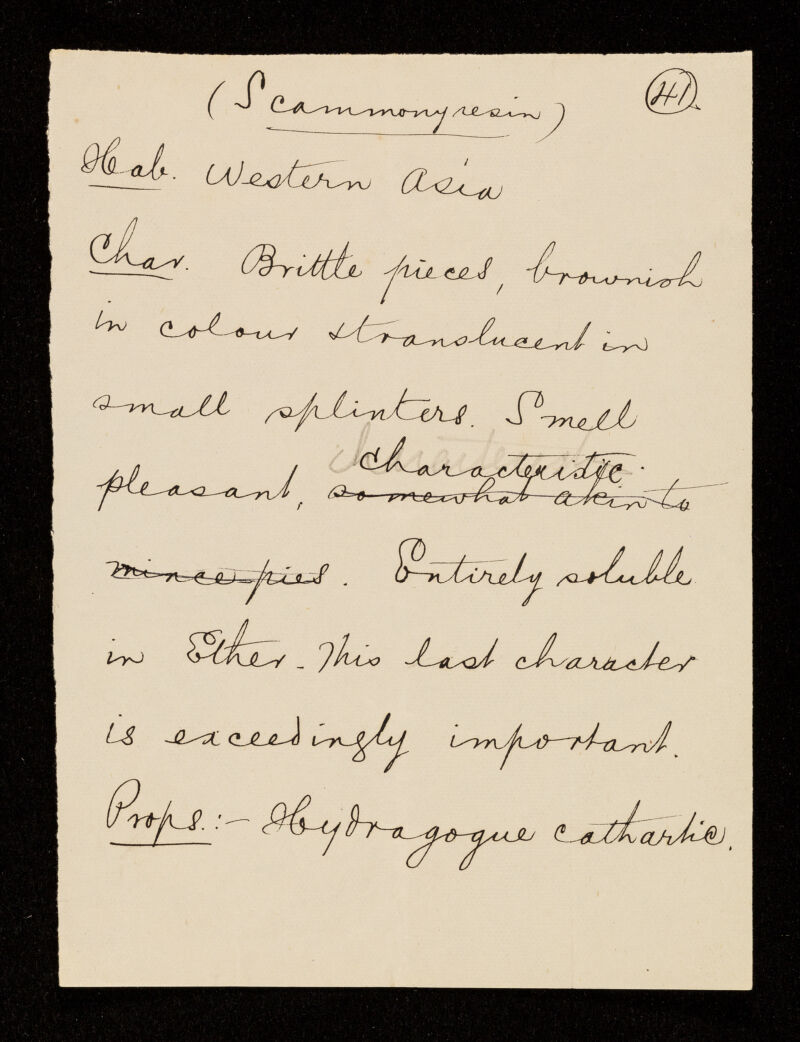 (Scammony resin) 41.
Hab. Western Asia
Char. Brittle pieces, brownish
in colour & translucent in
small splinters. Smell
characteristic.
pleasant, somewhat akin to
mince-pies. Entirely soluble
in Ether. This last character
is exceedingly important.
Props.:- Hydragogue cathartic.